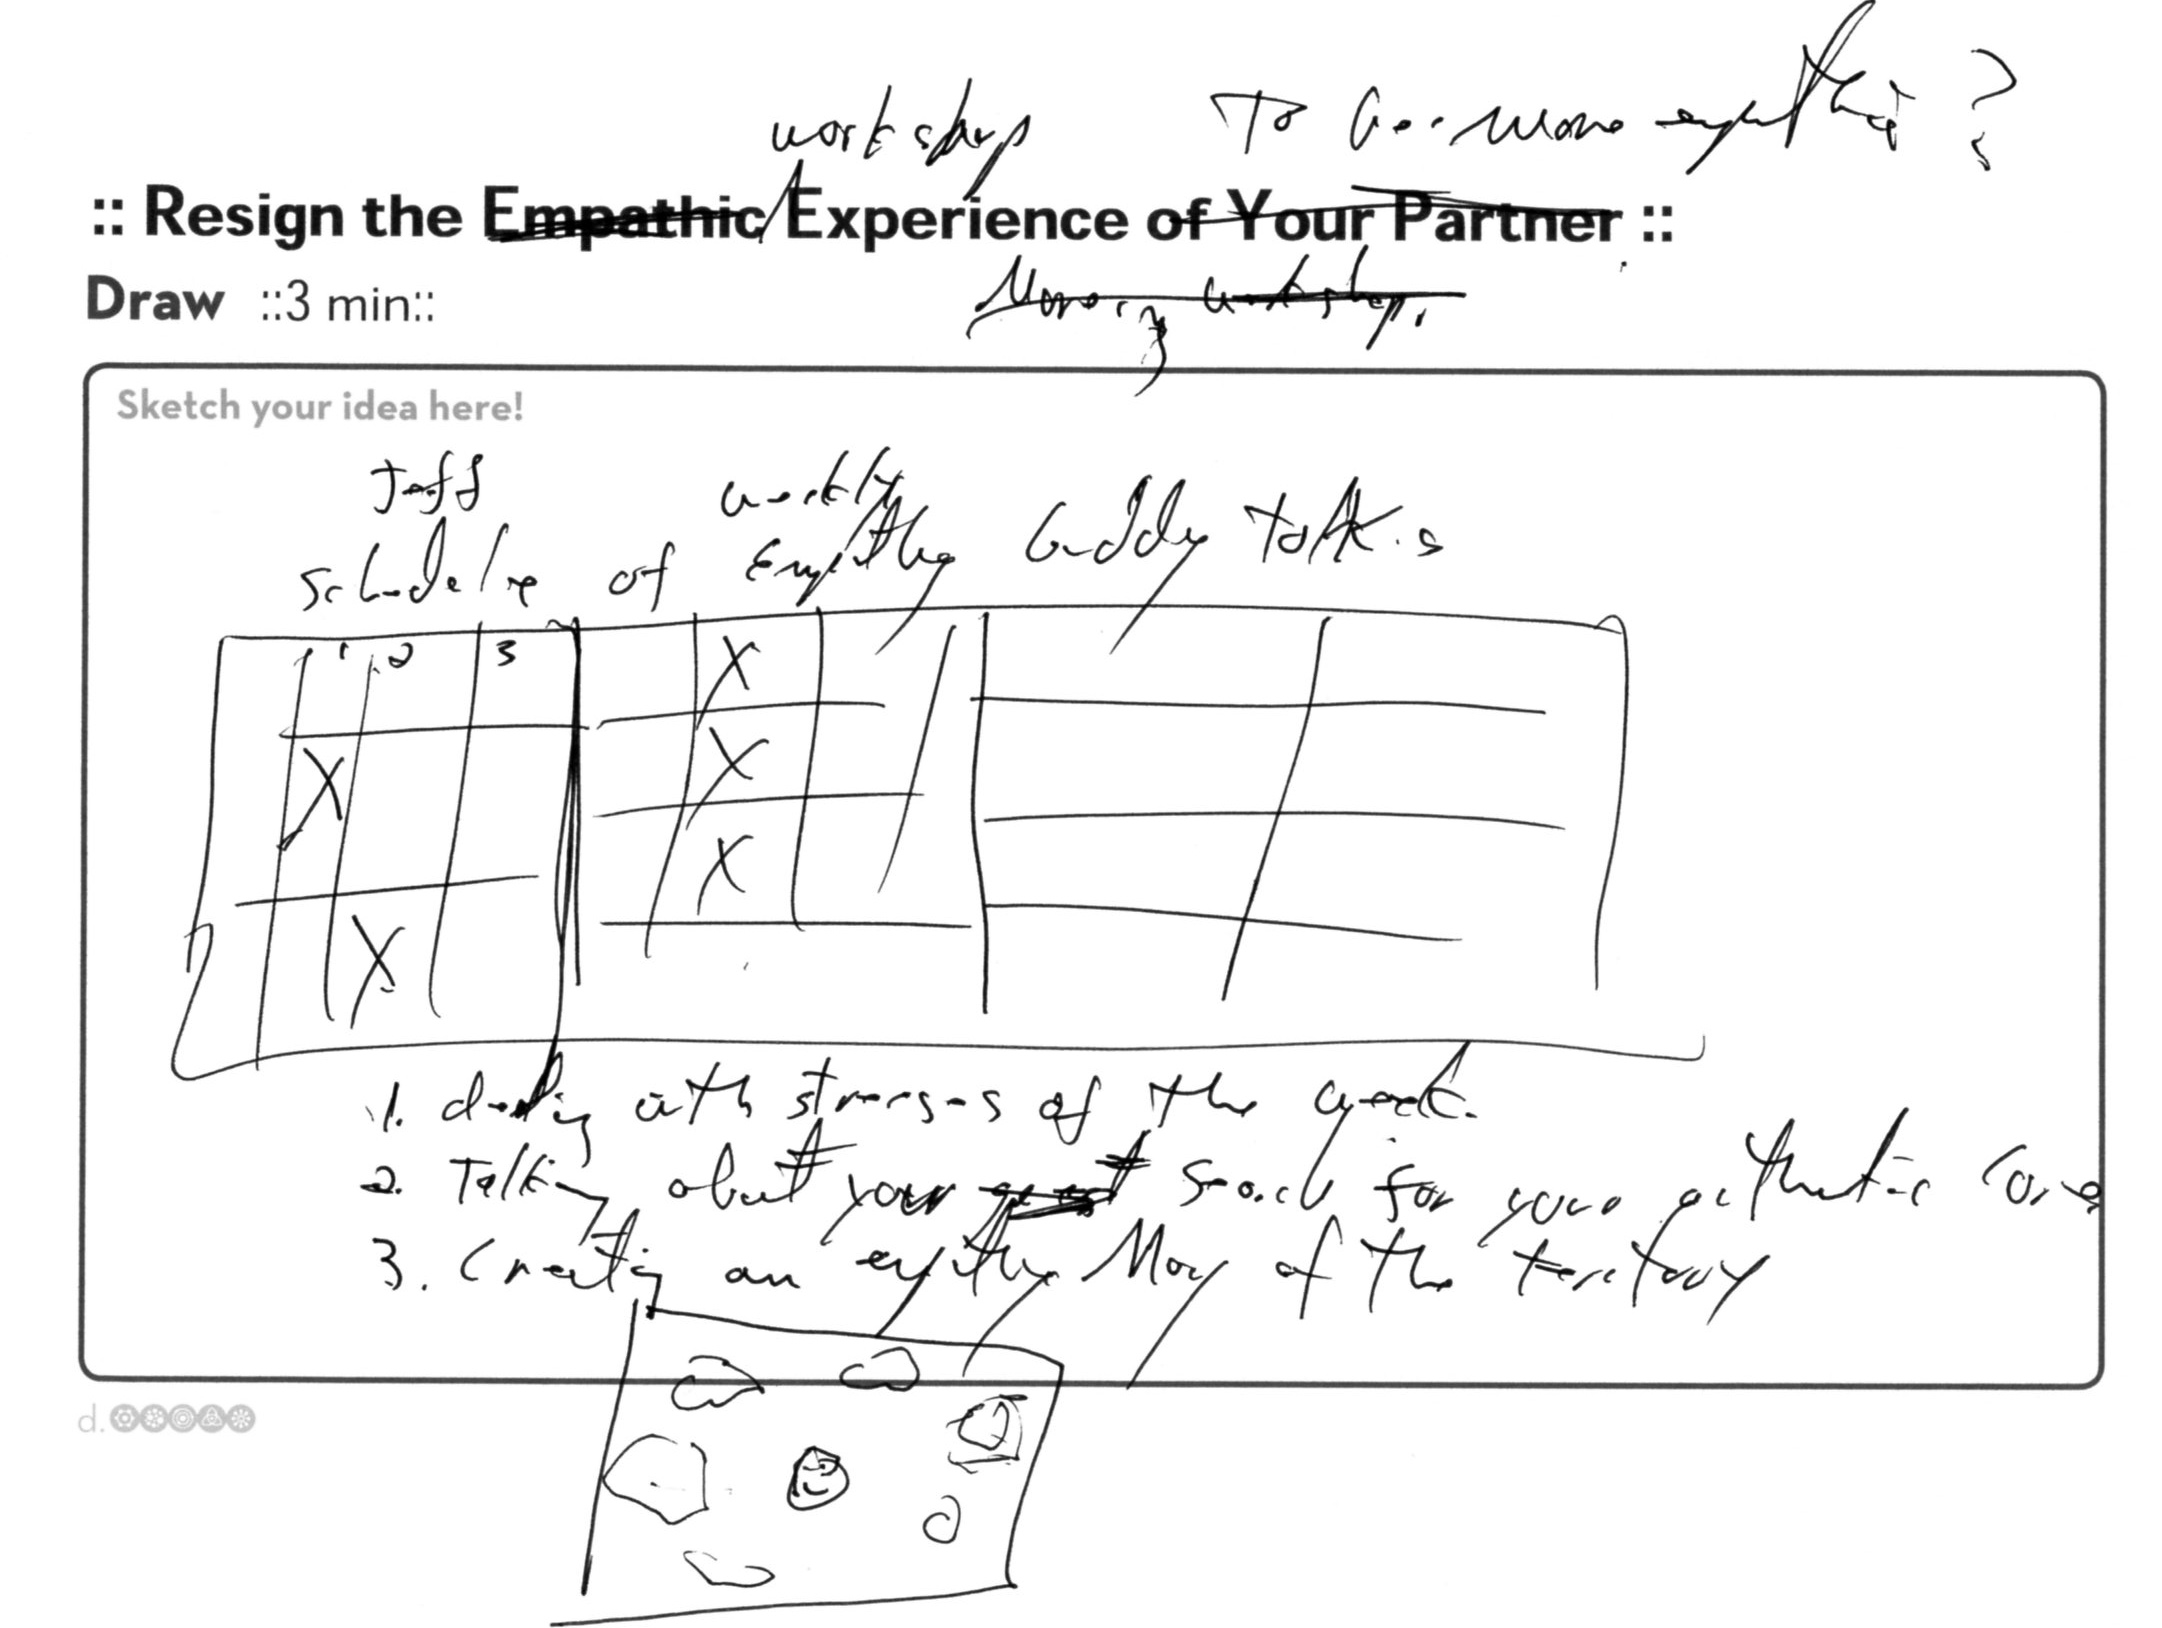 workshop To be more empathic?
:: Resign the Empathic Experience of Your Partner ::
Draw ::3 min::
Morning workshop.
Sketch your idea here!
Jeff weekly
schedule of Empathy buddy talks
1 2 3
X
X
X
X
X
1. dealing with stresses of the week.
2. Talking about your search for your authentic core
3. Creating an empathy Map of the territory
d.